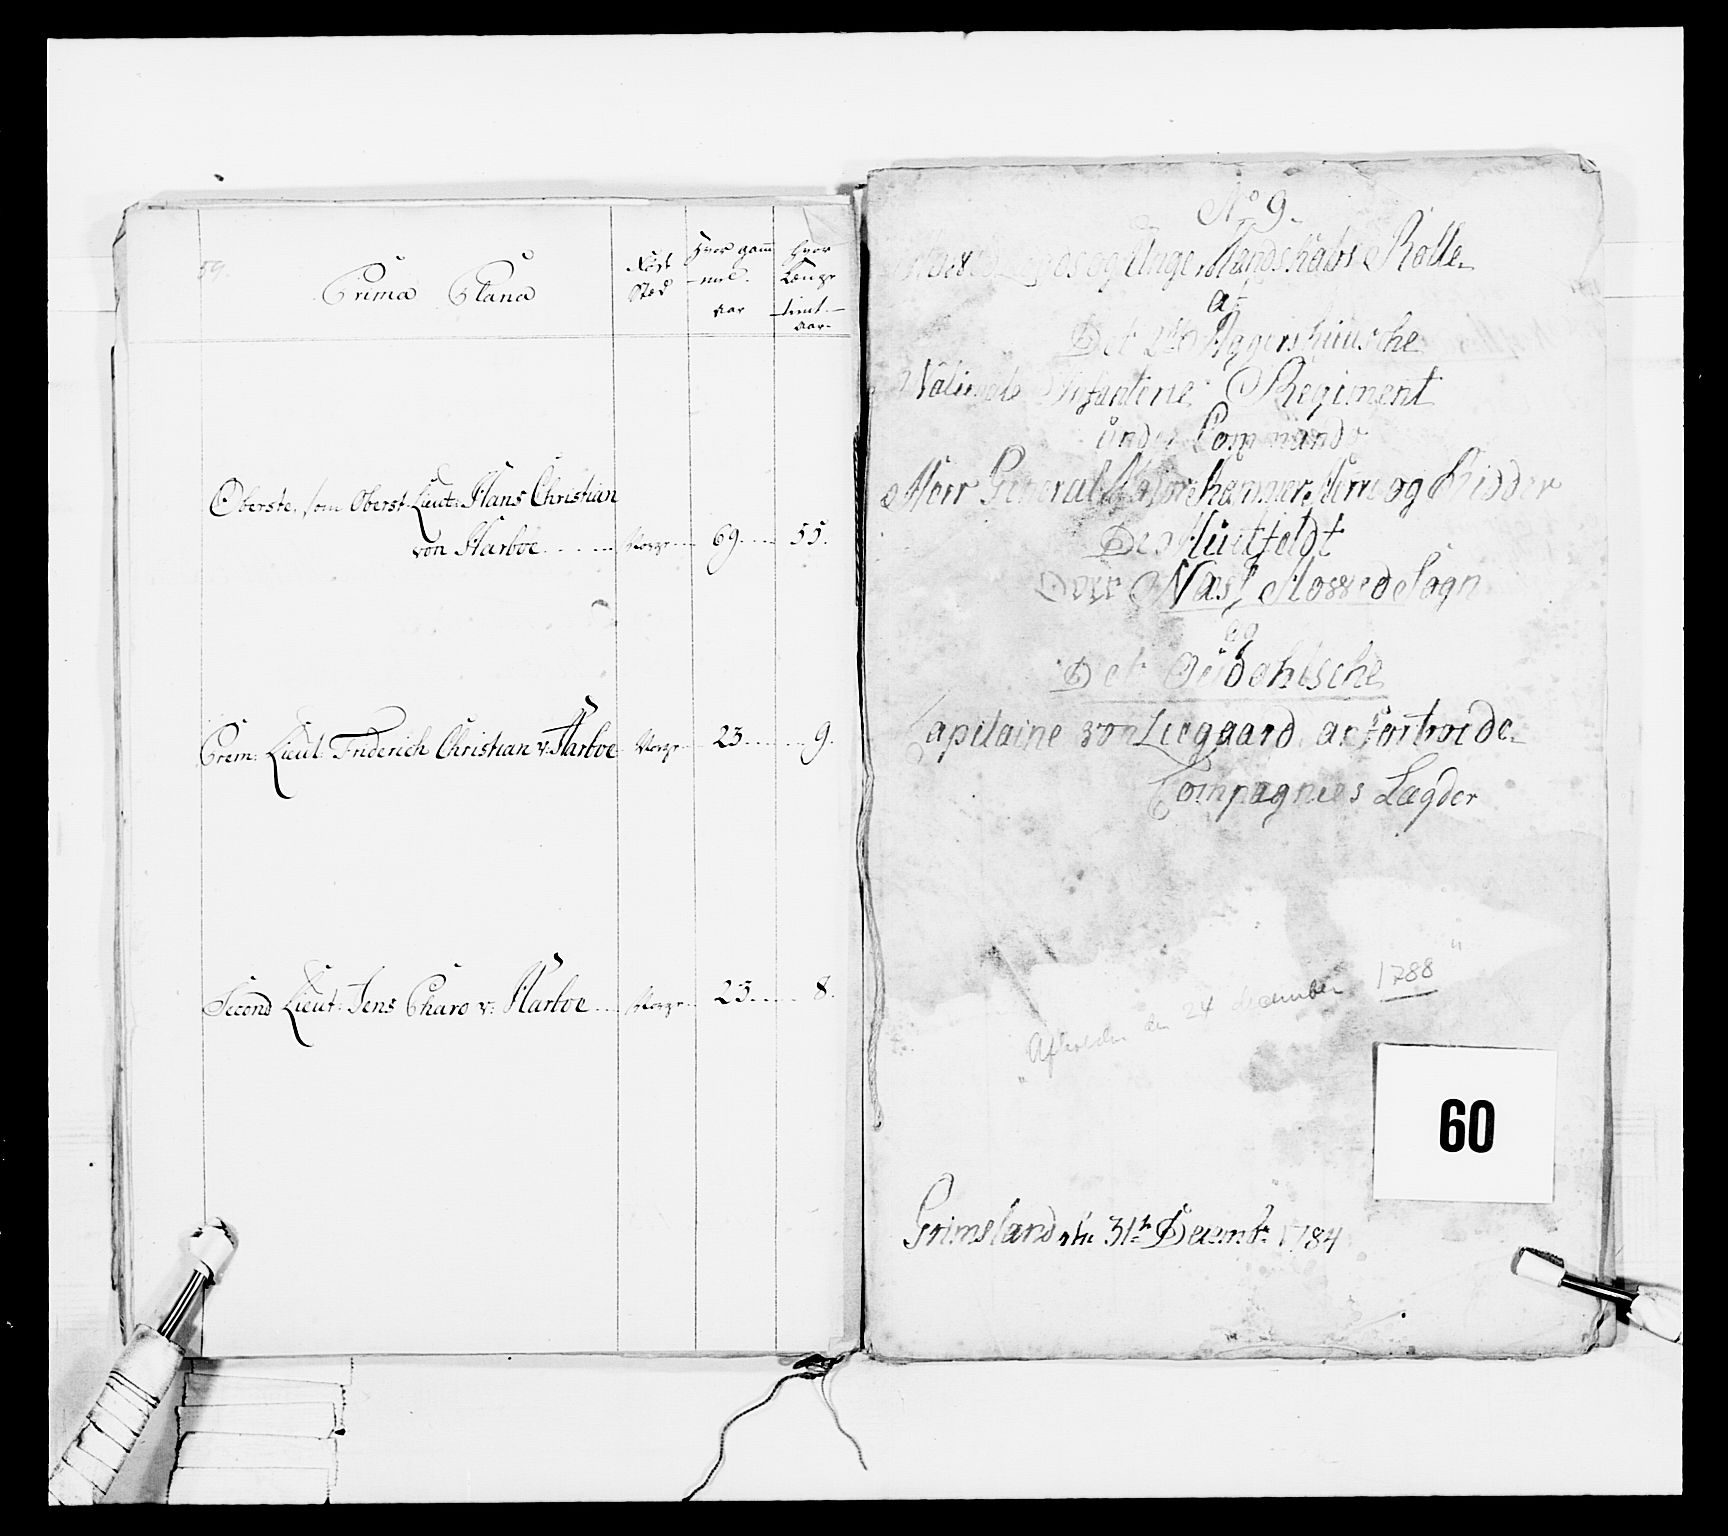 59.
Prima Plana
Fød-
Sted
hvor gam̄
-mel.
aar
hvor
Længe
tient.
aar.
Oberste, som Oberst Lieut: Hans Christian
von Harboe......
Norge...
69....
55.
Prem: Lieut: Friderich Christian v: Harboe
Norge..
23......
9.
Second Lieut: Jens Charo v: Harboe...
Norge..
23.....
8.
No 9.
og Unge Mandskabs Rolle
af
Det 2de Aggershuusche
Nationale Infanterie Regiment
under Commando
Herr General Major Kammer Herre og Ridder
De Huitfeldt
Over Næs Hoved Sogn
og
Det Oudahlsche
Capitaine von Liegaard anfortroede
Compagnies Lægder
"Afleveden den 24 december 1788"
60
Grimsland den 31te Decembr: 1784